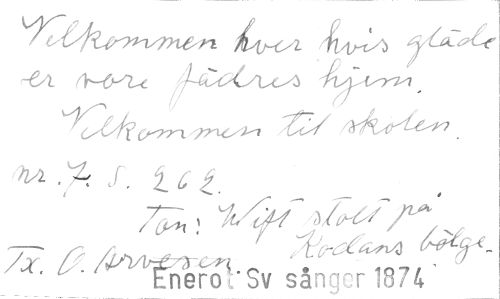 Velkommen hver hvis glæde
er vore fädres hjem.
Velkommen til skolen.
nr. 7. S. 262.
Ton: Wift stolt på
Kodans bölge.
Tx. O. Arvesen.
Enerot. Sv sånger 1874